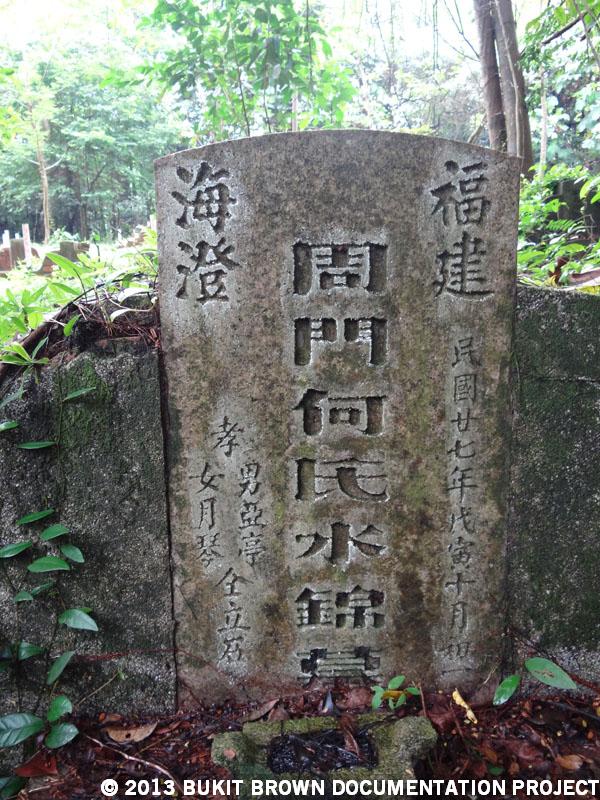 福建
民國廿七年戊寅十月初一
周門何氏水錦墓
海澄
孝
男亞亭
女月琴
仝立石
© 2013 BUKIT BROWN DOCUMENTATION PROJECT